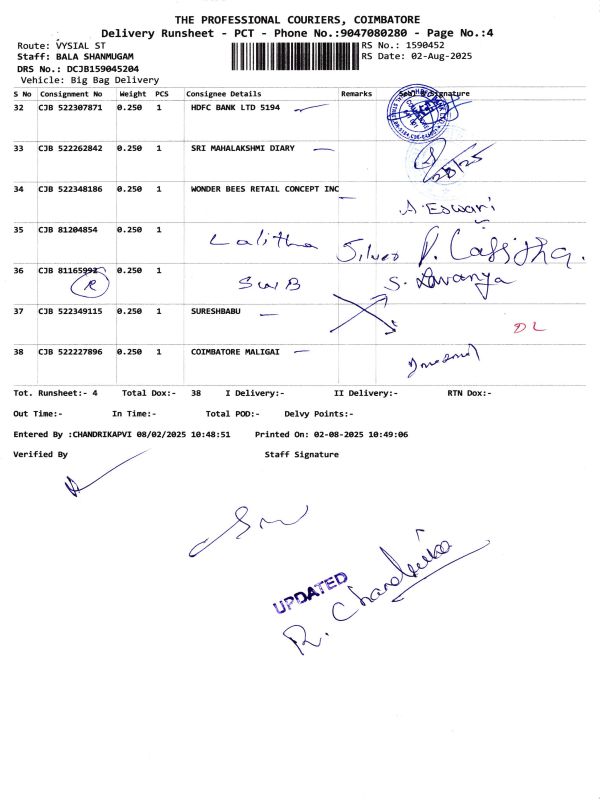 THE PROFESSIONAL COURIERS, COIMBATORE
Delivery Runsheet - PCT - Phone No.:9047080280 - Page No.:4
Route: VYSIAL ST
RS No.: 1590452
Staff: BALA SHANMUGAM
RS Date: 02-Aug-2025
DRS No.: DCJB159045204
Vehicle: Big Bag Delivery
S No Consignment No Weight PCS Consignee Details Remarks Seal & Signature
32 CJB 522307871 0.250 1 HDFC BANK LTD 5194
33 CJB 522262842 0.250 1 SRI MAHALAKSHMI DIARY
34 CJB 522348186 0.250 1 WONDER BEES RETAIL CONCEPT INC
A. Eswari
35 CJB 81204854 0.250 1 Lalitha Silver
36 CJB 81165992 0.250 1 SWB S. Divanya
R
37 CJB 522349115 0.250 1 SURESHBABU
DL
38 CJB 522227896 0.250 1 COIMBATORE MALIGAI
Tot. Runsheet:- 4 Total Dox:- 38 I Delivery:- II Delivery:- RTN Dox:-
Out Time:- In Time:- Total POD:- Delvy Points:-
Entered By :CHANDRIKAPVI 08/02/2025 10:48:51 Printed On: 02-08-2025 10:49:06
Verified By Staff Signature
UPDATED
R. Chandrika